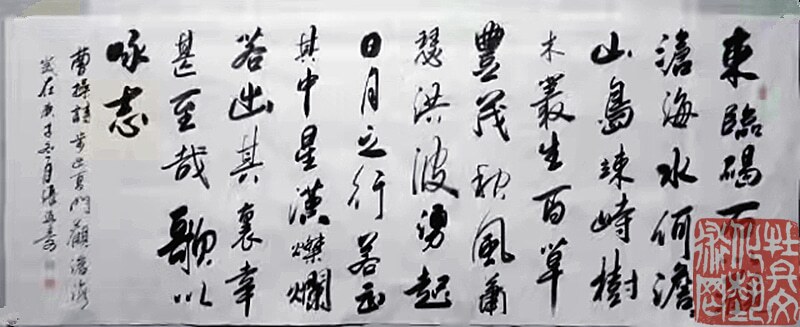 東臨碣
滄海水何澹
山島竦峙樹
木叢生百草
豐茂秋風蕭
瑟洪波湧起
日月之行若出
其中星漢燦爛
若出其裏幸
甚至哉歌以
咏志
曹操詩步出夏門觀滄海
歲在庚子冬月張